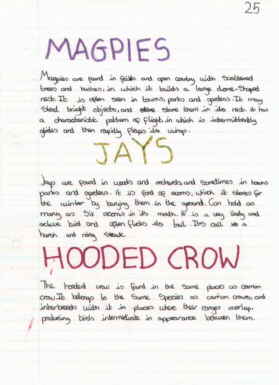 25
MAGPIES
Magpies are found in fields and open country with scattered
trees and bushes, in which it builds a large dome-shaped
nest. It is often seen in towns parks and gardens. It may
steal bright objects, and store them in its nest. It has
a characteristic pattern of flight, in which is intermittently
glides and then rapidly flaps its wings.
JAYS
Jays are found in woods and orchards and sometimes in towns
parks and gardens. It is fond of acorns, which it stores for
the winter by burying them in the ground. Can hold as
many as six acorns in its mouth. It is a very lively and
active bird and often flicks its tail. Its call is a
harsh and noisy
HOODED CROW
The hooded crow is found in the same places as carrion
crow. It belongs to the same species as carrion crows, and
interbreeds with it in places where their ranges overlap,
producing birds intermediate in appearance between them.